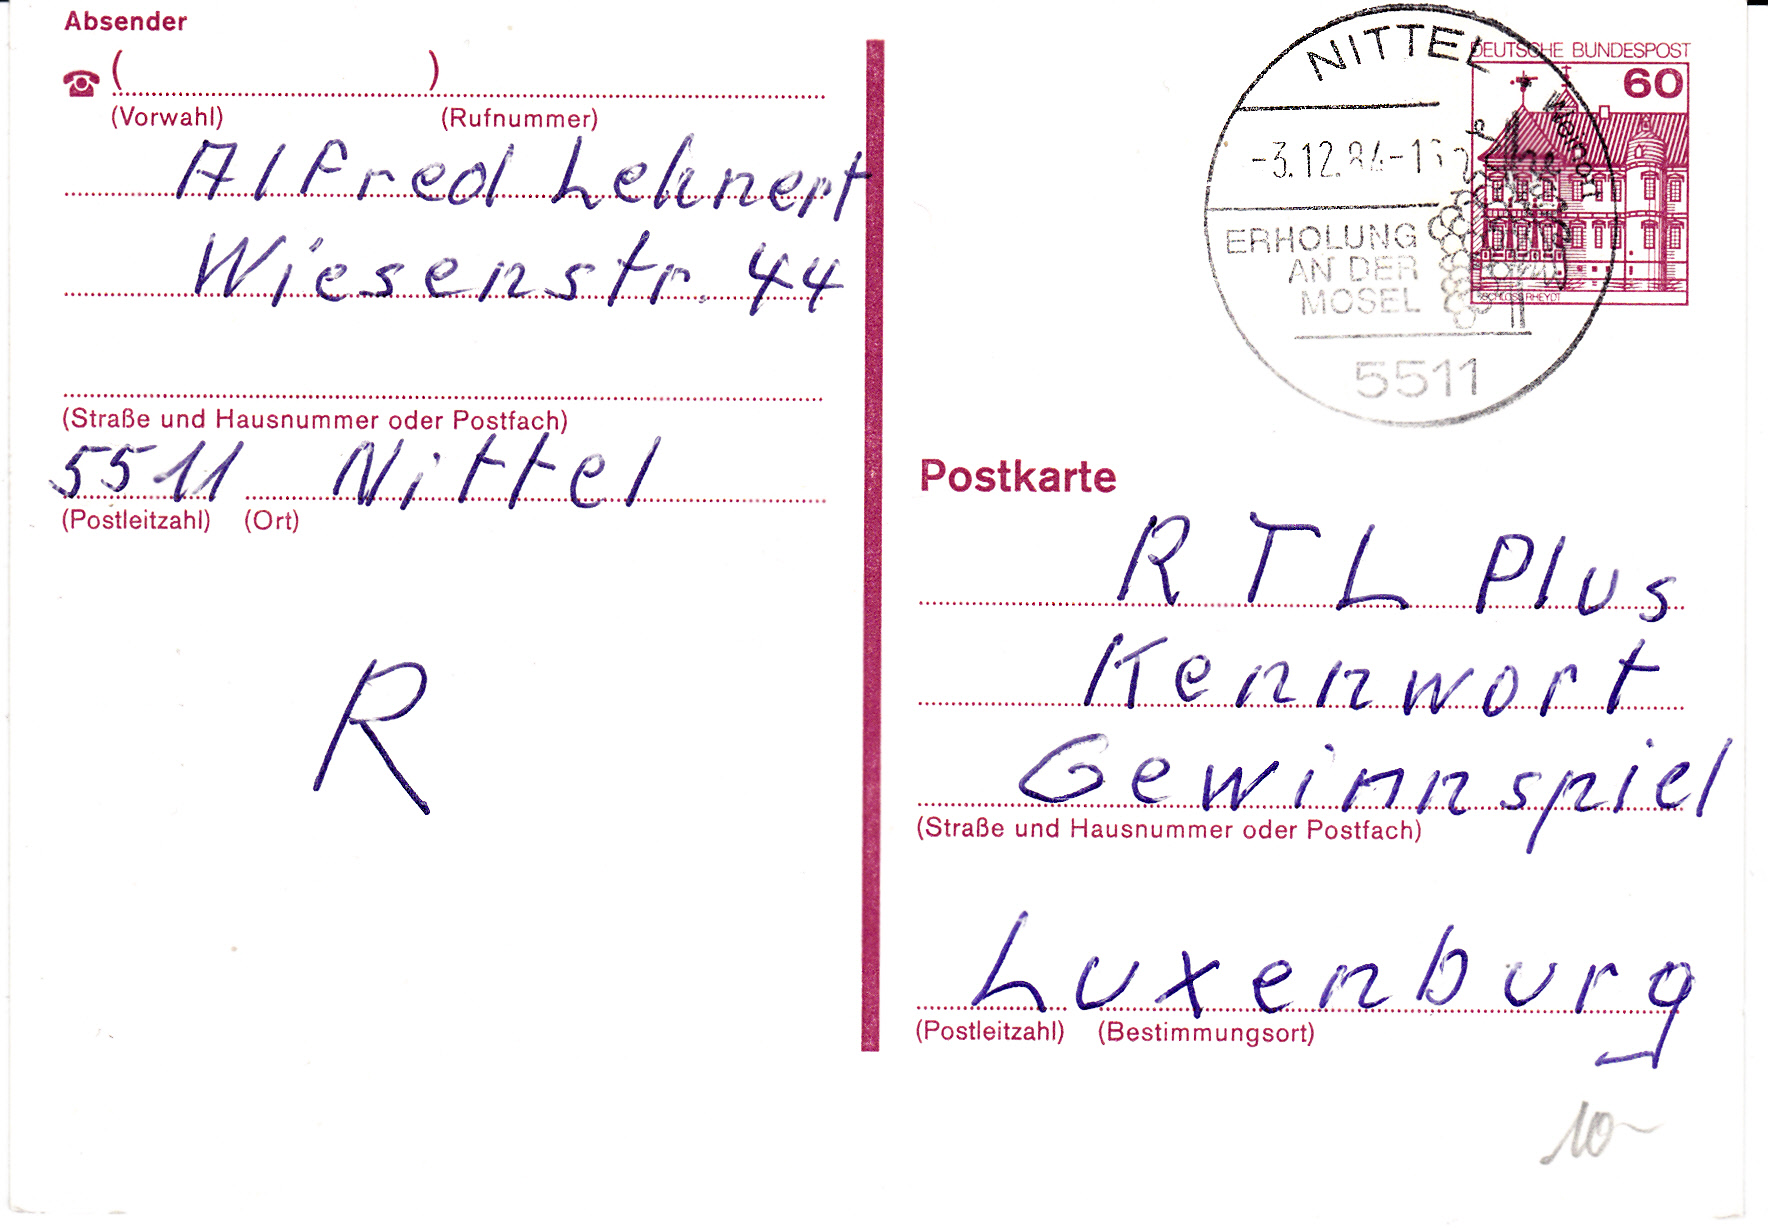 Absender
( )
(Vorwahl) (Rufnummer)
Alfred Lehnert
Wiesenstr. 44
(Straße und Hausnummer oder Postfach)
5511 Nittel
(Postleitzahl) (Ort)
R
NITTEL
Weinort
-3.12.84-
ERHOLUNG
AN DER
MOSEL
5511
DEUTSCHE BUNDESPOST
60
SCHLOSS RHEYDT
Postkarte
RTL Plus
Kennwort
Gewinnspiel
(Straße und Hausnummer oder Postfach)
Luxenburg
(Postleitzahl) (Bestimmungsort)
10-